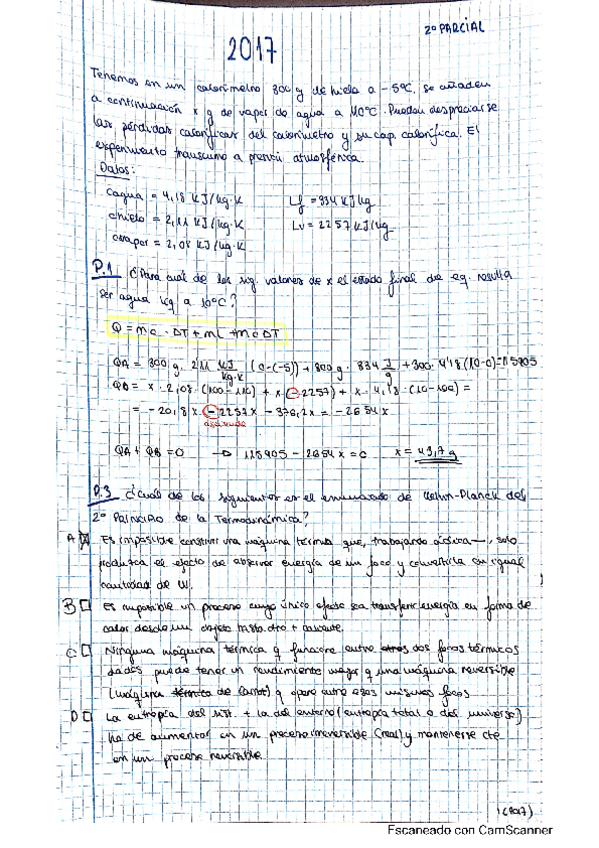 2º PARCIAL
2017
Tenemos en un calorímetro 300 g de hielo a -5ºC, se añaden
a continuación x g de vapor de agua a 110ºC. Puedan despreciarse
las pérdidas caloríficas del calorímetro y su cap. calorífica. El
experimento transcurre a presión atmosférica.
Datos:
cagua = 4,18 KJ/kg·K Lf = 334 KJ/kg
chielo = 2,11 KJ/kg·K Lv = 2257 KJ/kg
cvapor = 2,08 KJ/kg·K
P.1 ¿Para cuál de los sig. valores de x el estado final de eq. resulta
ser agua líq a 10ºC?
Q = mc · ΔT + mL + mcΔT
QA = 300 g. 2,11 KJ/kg·K (0-(-5)) + 300 g. 334 J/g + 300· 4,18 (10-0)=115905
QB = x · 2,08 · (100-110) + x·(-2257) + x· 4,18 · (10-100) =
= -20,8x - 2257x - 376,2x = -2654x
QA + QB = 0 → 115905 - 2654x = 0 x = 43,7 g
P.3 ¿Cuál de los siguientes es el enunciado de Kelvin-Planck del
2º PRINCIPIO de la Termodinámica?
A Es imposible construir una máquina térmica que, trabajando, solo
produzca el efecto de absorber energía de un foco y convertirla en igual
cantidad de W.
B Es imposible un proceso cuyo único efecto sea transferir energía en forma de
calor desde un objeto hasta otro + caliente.
C Ninguna máquina térmica q funcione entre dos focos térmicos
dados puede tener un rendimiento mayor q una máquina reversible
(máquina térmica de Carnot) q opere entre esos mismos focos
D La entropía del sist. + la del entorno (entropía total o del universo)
ha de aumentar en un proceso irreversible (real) y mantenerse cte
en un proceso reversible.
1(2017)
Escaneado con CamScanner